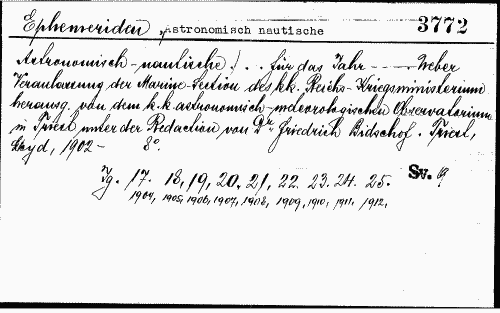 Ephemeriden, Astronomisch nautische 3772
Astronomisch-nautische! . . für das Jahr - - - - Ueber
Veranlassung der Marine-Section des k.k. Reichs-Kriegsministerium
herausg. von dem k.k. astronomisch-meteorologischen Observatorium
in Triest unter der Redaction von Dr. Friedrich Bidschof. Triest,
Lloyd, 1902- 8°.
Jg. 17. 18, 19, 20, 21, 22. 23. 24. 25. Sv. 69
1904, 1905, 1906, 1907, 1908, 1909, 1910, 1911, 1912,